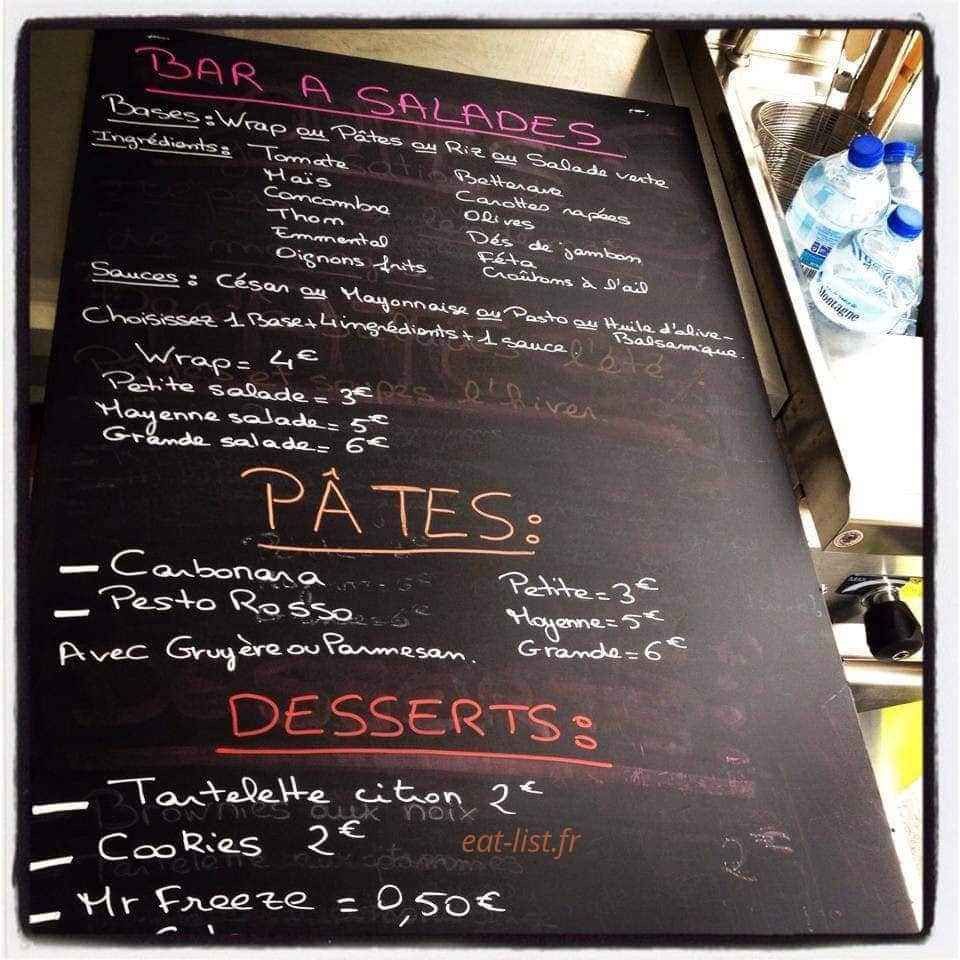 BAR A SALADES
Bases: Wrap ou Pâtes ou Riz ou Salade verte
Ingrédients: Tomate Betterave
Maïs Carottes rapées
Concombre Olives
Thon Dés de jambon
Emmental Féta
Oignons frits Croûtons à l'ail
Sauces: César ou Mayonnaise ou Pesto ou Huile d'olive-
Balsamique.
Choisissez 1 Base + 4 ingrédients + 1 sauce.
Wrap = 4€
Petite salade = 3€
Moyenne salade = 5€
Grande salade = 6€
l'été
l'hiver
PÂTES:
- Carbonara Petite = 3€
- Pesto Rosso Moyenne = 5€
Avec Gruyère ou Parmesan. Grande = 6€
DESSERTS:
- Tartelette citron 2€
Brownies aux noix
- Cookies 2€
eat-list.fr
Tartelette aux pommes 2€
- Mr Freeze = 0,50€
Montagne